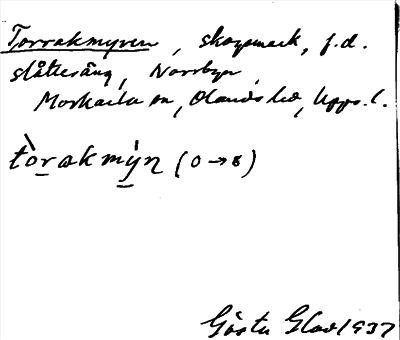 Torrakmyren, skogsmark, f.d.
slåtteräng, Norrbyn,
Morkarla sn, Olands hd, Upps. l.
tòrakmy̍n (o → ɞ)
Gösta Glad 1937